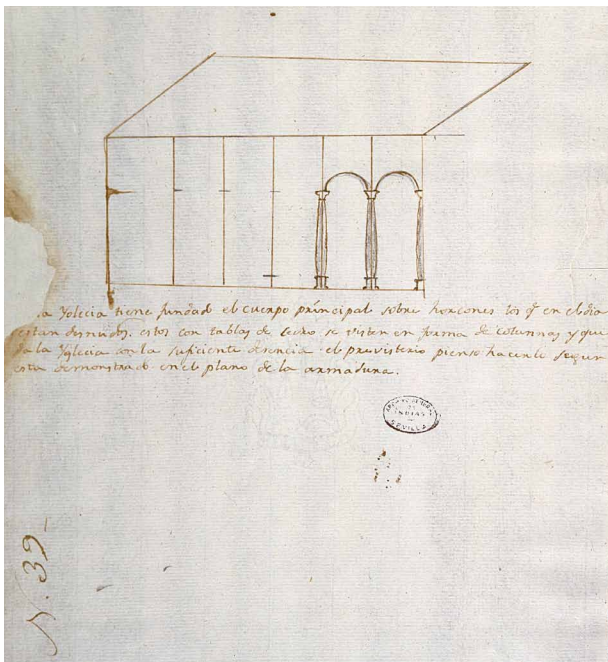 la Yglecia tiene fundado el cuerpo principal sobre horcones los q.e en el dia
estan desnudos, estos con tablas de sedro se visten en forma de columnas y que
da la Yglecia con la suficiente desencia el presvisterio pienso hacerle segun
esta demonstrado en el plano de la armadura.
ARCHIVO GENERAL
DE
INDIAS
SEVILLA
N. 39